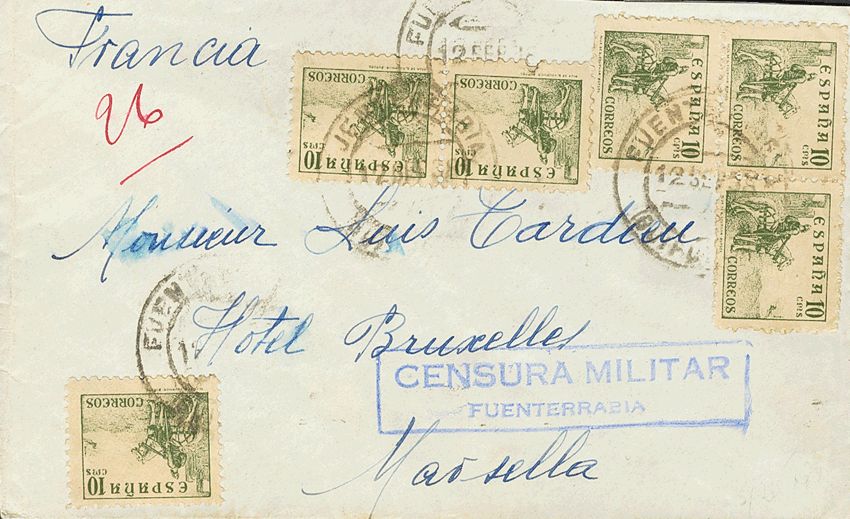 Francia
96
CORREOS
ESPAÑA
10 CTS
CORREOS
ESPAÑA
10 CTS
CORREOS
ESPAÑA
10 CTS
CORREOS
ESPAÑA
10 CTS
CORREOS
ESPAÑA
10 CTS
Monsieur Luis Tardieu
Hotel Bruxelles
CENSURA MILITAR
FUENTERRABIA
Marsella
CORREOS
ESPAÑA
10 CTS